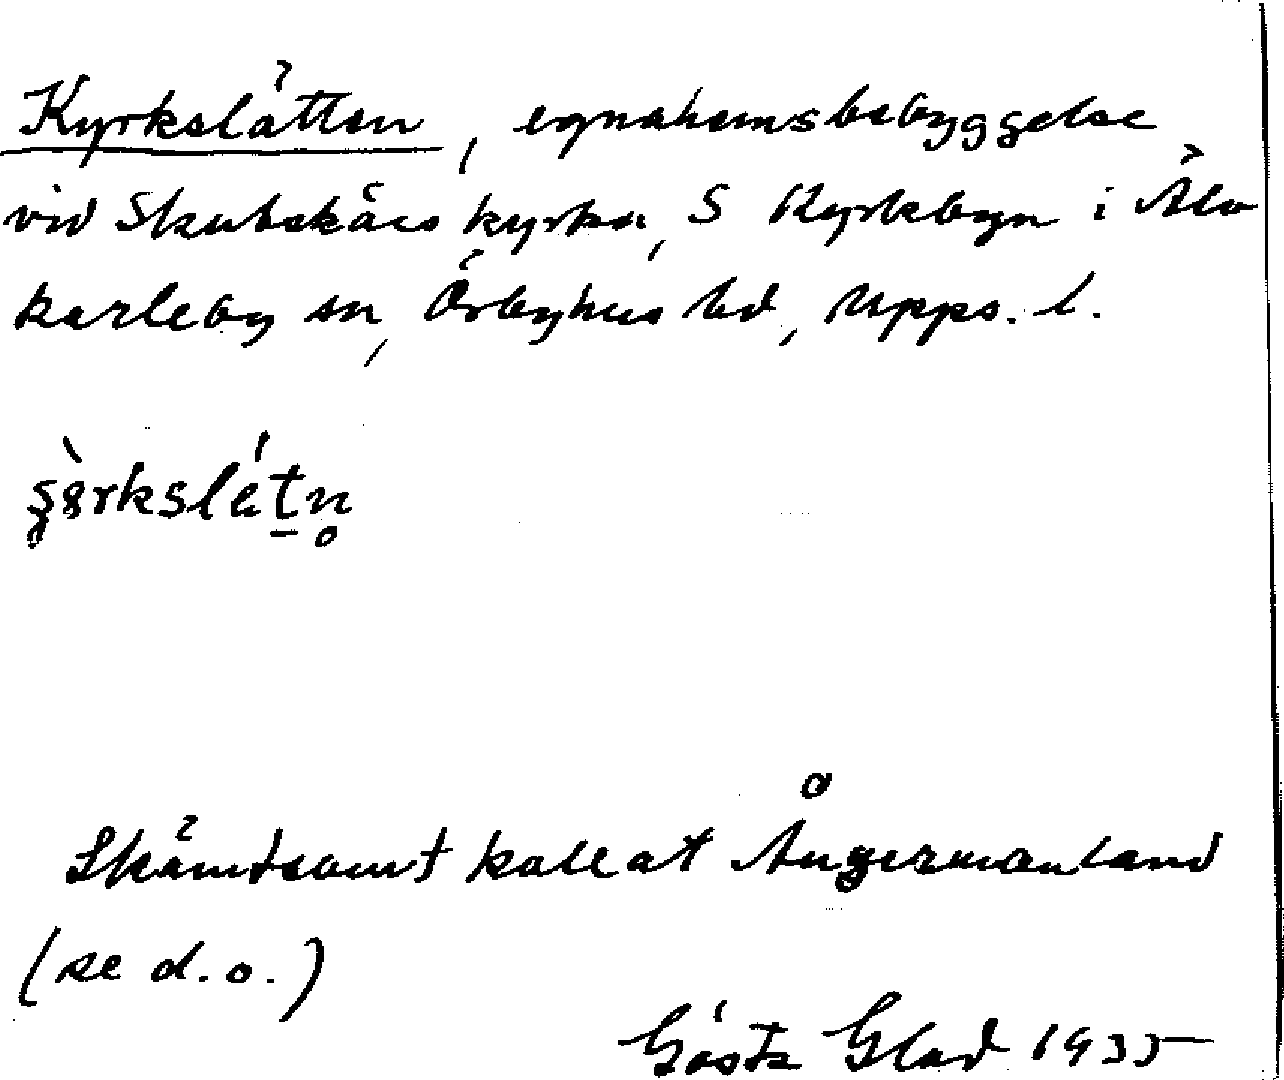 Kyrkslätten, egnahemsbebyggelse
vid Skutskärs kyrka, S Kyrkbyn i Älv
karleby sn, Örbyhus hd, Upps. l.
Skämtsamt kallat Ångermanland
(se d.o.)
Gösta Glad 1935